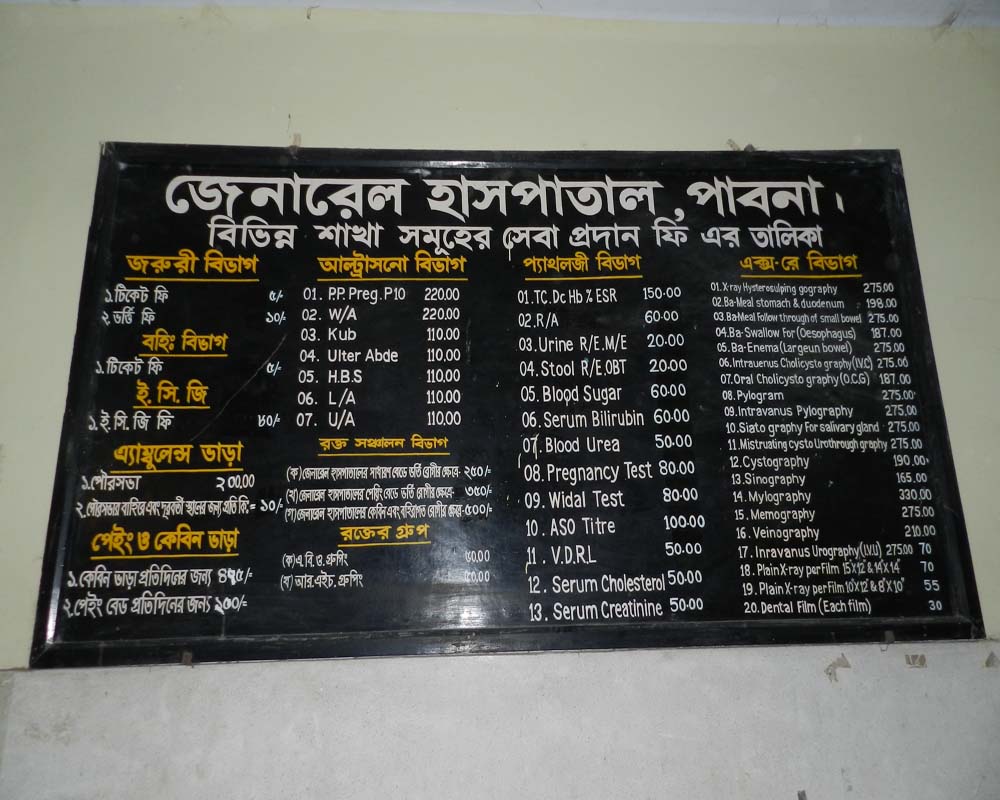 জেনারেল হাসপাতাল, পাবনা।
বিভিন্ন শাখা সমূহের সেবা প্রদান ফি এর তালিকা
জরুরী বিভাগ
১.টিকেট ফি ৫/-
২.ভর্তি ফি ১০/-
বহিঃ বিভাগ
১.টিকেট ফি ৫/-
ই. সি. জি
১.ই সি জি ফি ৮০/-
এ্যাম্বুলেন্স ভাড়া
১.পৌরসভা ২০০.০০
২.পৌরসভার বাহিরে এবং দূরবর্তী স্থানের জন্য প্রতি কি:= ১০/=
পেইং ও কেবিন ভাড়া
১.কেবিন ভাড়া প্রতিদিনের জন্য ৪৭৫/=
২.পেইং বেড প্রতিদিনের জন্য ২৫০/=
আল্ট্রাসনো বিভাগ
01. P.P. Preg. P10 220.00
02. W/A 220.00
03. Kub 110.00
04. Ulter Abde 110.00
05. H.B.S 110.00
06. L/A 110.00
07. U/A 110.00
রক্ত সঞ্চালন বিভাগ
(ক) জেনারেল হাসপাতালের সাধারণ বেডে ভর্তি রোগীর ক্ষেত্রে- ২৫০/=
(খ) জেনারেল হাসপাতালের পেয়িং বেডে ভর্তি রোগীর ক্ষেত্রে- ৩৫০/=
(গ) জেনারেল হাসপাতালের কেবিন এবং বহিরাগত রোগীর ক্ষেত্রে-৫০০/=
রক্তের গ্রুপ
(ক) এ. বি. ও. গ্রুপিং ৫০.০০
(খ) আর.এইচ. গ্রুপিং ৫০.০০
প্যাথলজী বিভাগ
01. TC. Dc Hb % ESR 150.00
02. R/A 60.00
03. Urine R/E.M/E 20.00
04. Stool R/E.OBT 20.00
05. Blood Sugar 60.00
06. Serum Bilirubin 60.00
07. Blood Urea 50.00
08. Pregnancy Test 80.00
09. Widal Test 80.00
10. ASO Titre 100.00
11. V.D.R.L 50.00
12. Serum Cholesterol 50.00
13. Serum Creatinine 50.00
এক্স-রে বিভাগ
01. X-ray Hysterosulping gography 275.00
02. Ba-Meal stomach & duodenum 198.00
03. Ba-Meal Follow through of small bowel 275.00
04. Ba-Swallow For (Oesophagus) 187.00
05. Ba-Enema (Largeun bowel) 275.00
06. Intrauenus Cholicysto graphy (I.V.C) 275.00
07. Oral Cholicysto graphy (O.C.G) 187.00
08. Pylogram 275.00
09. Intravanus Pylography 275.00
10. Siato graphy For salivary gland 275.00
11. Mistruating cysto Urothrough graphy 275.00
12. Cystography 190.00
13. Sinography 165.00
14. Mylography 330.00
15. Memography 275.00
16. Veinography 210.00
17. Inravanus Urography (I.V.U) 275.00 70
18. Plain X-ray per Film 15"X12" & 14"X14" 70
19. Plain X-ray per Film 10"X12" & 8"X10" 55
20. Dental Film (Each film) 30